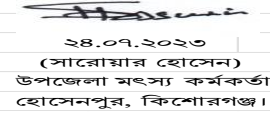 ২৪.০৭.২০২৩
(সারোয়ার হোসেন)
উপজেলা মৎস্য কর্মকর্তা
হোসেনপুর, কিশোরগঞ্জ।